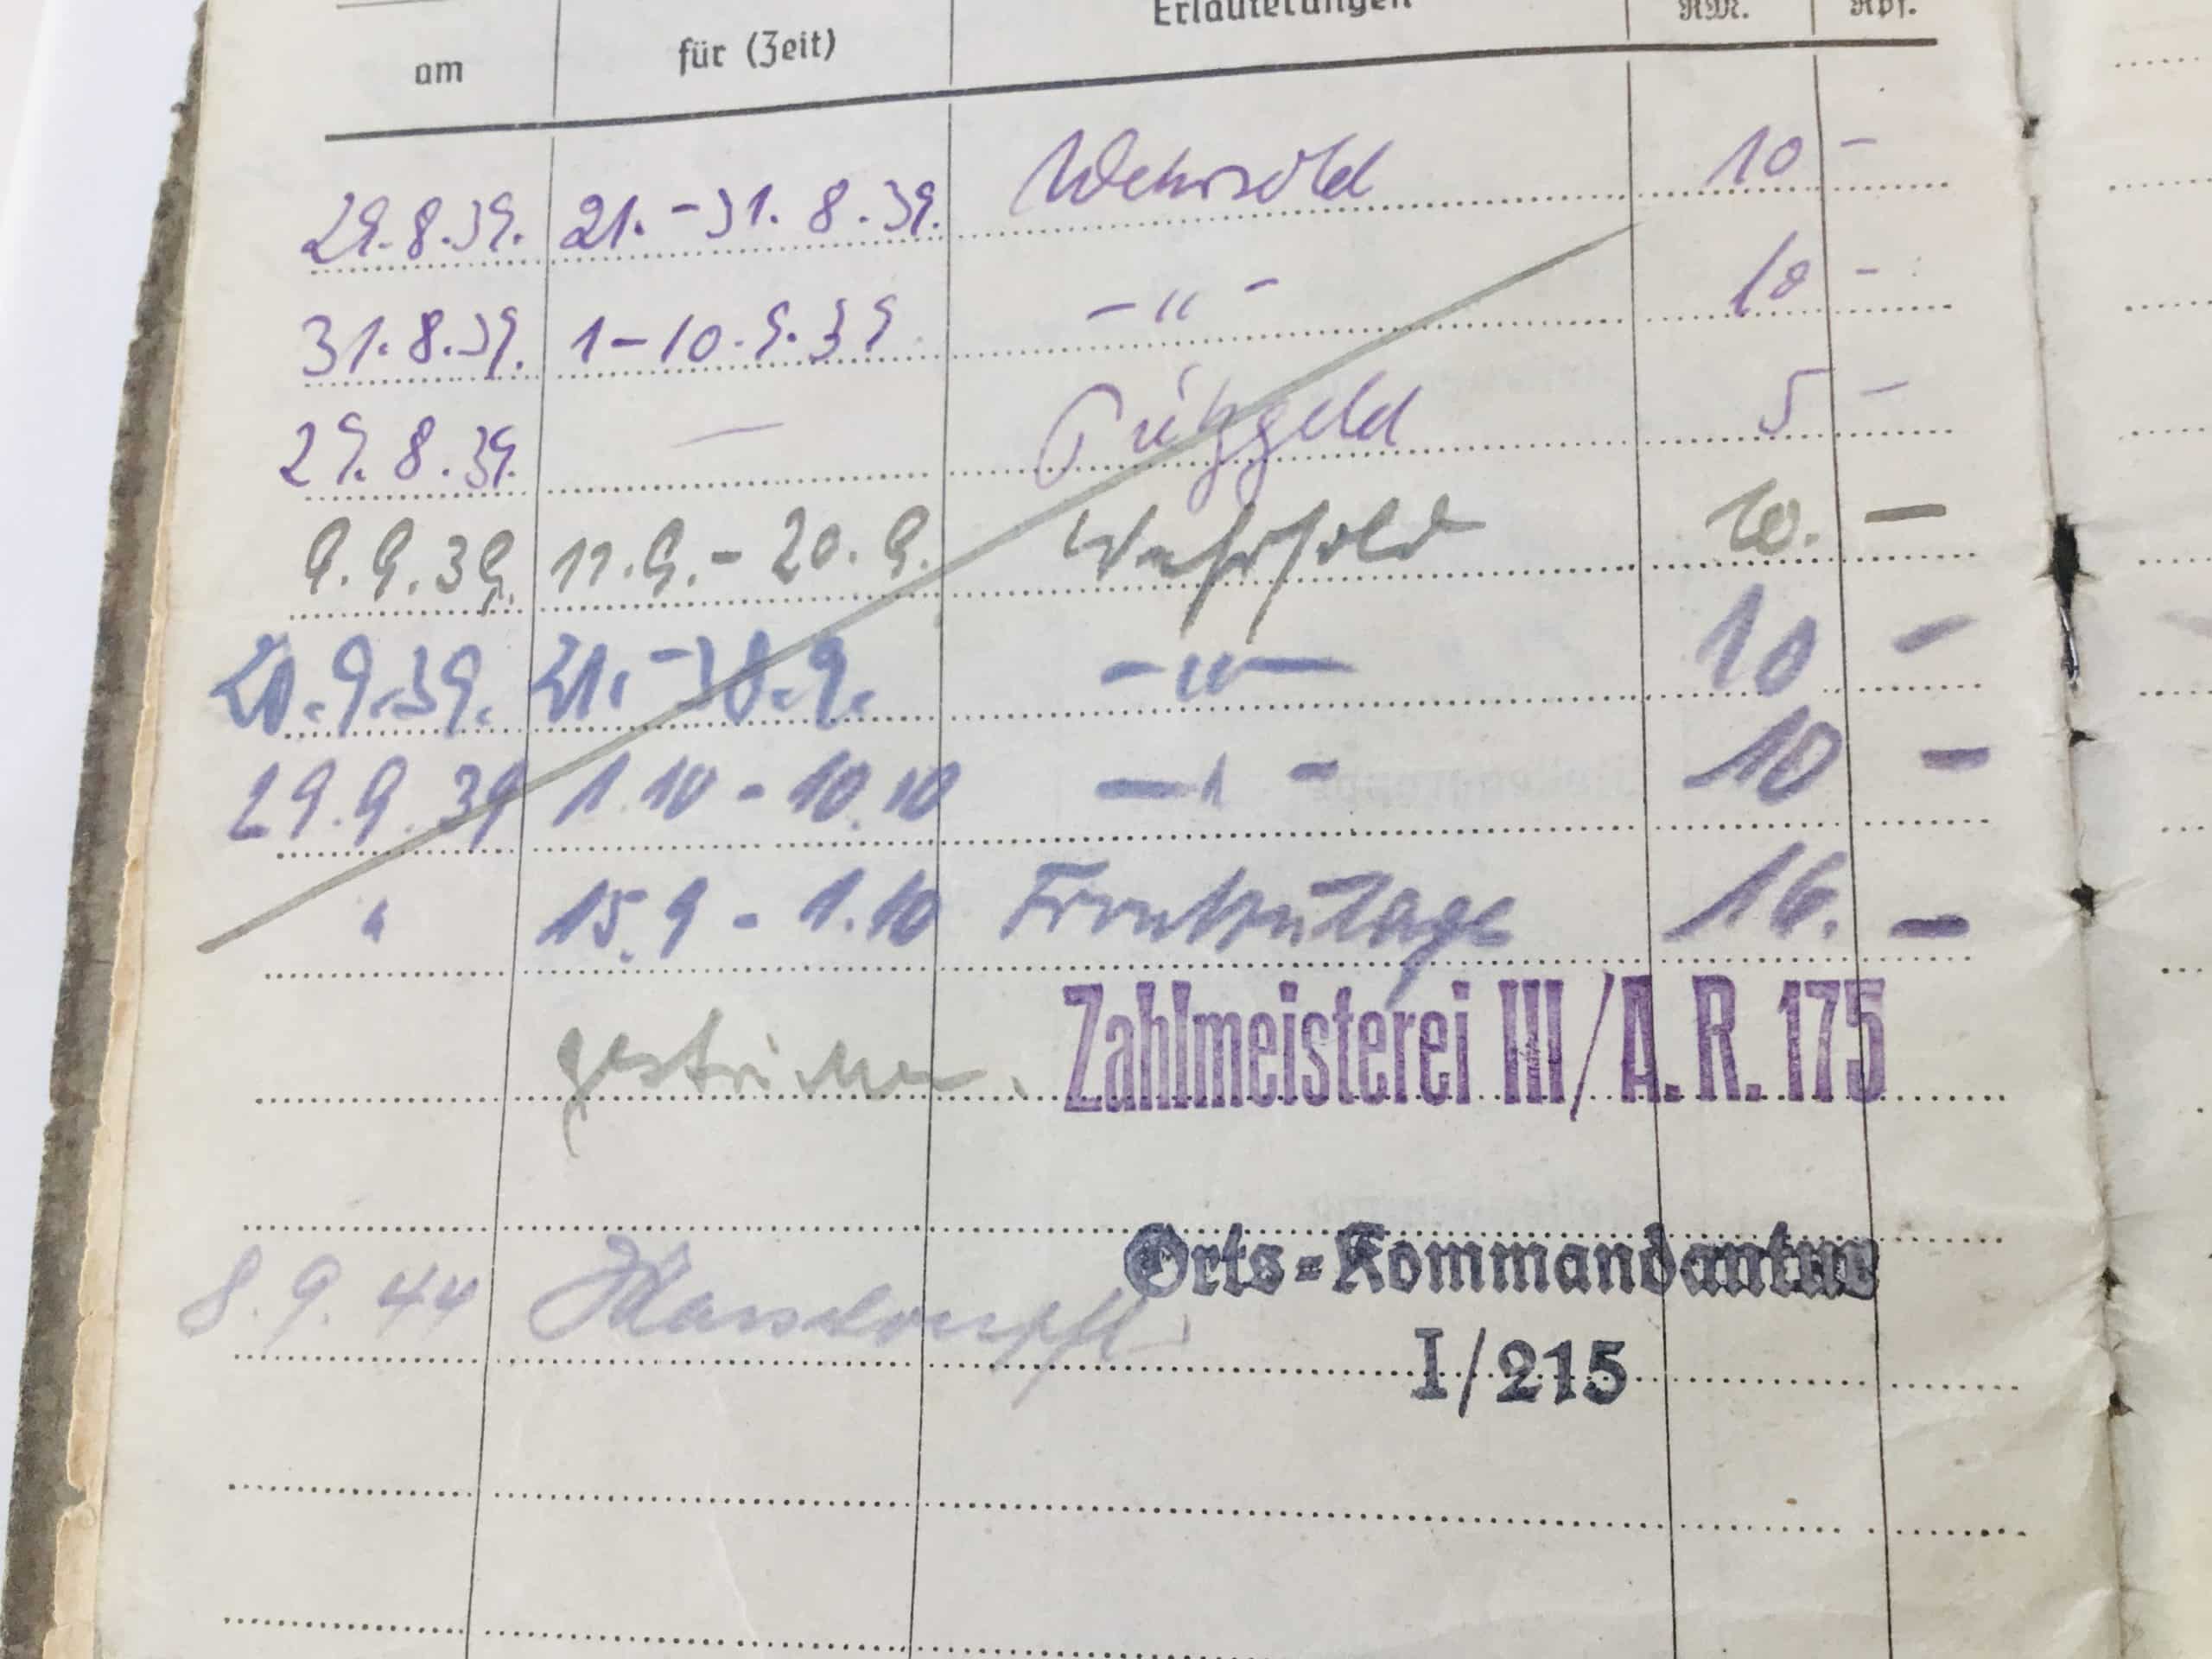 Erläuterungen RM. Rpf.
am für (Zeit)
29.8.39. 21.-31.8.39. Wehrsold 10 -
31.8.39. 1-10.9.39 -"- 10 -
29.8.39. — Putzgeld 5 -
9.9.39. 11.9.-20.9. Wehrsold 10. —
20.9.39. 21.-30.9. -"- 10 -
29.9.39 1.10-10.10 -"- 10 -
" 15.9-1.10 Frontzulage 16. -
gestrichen. Zahlmeisterei III/A.R.175
Orts-Kommandantur
8.9.44
I/215